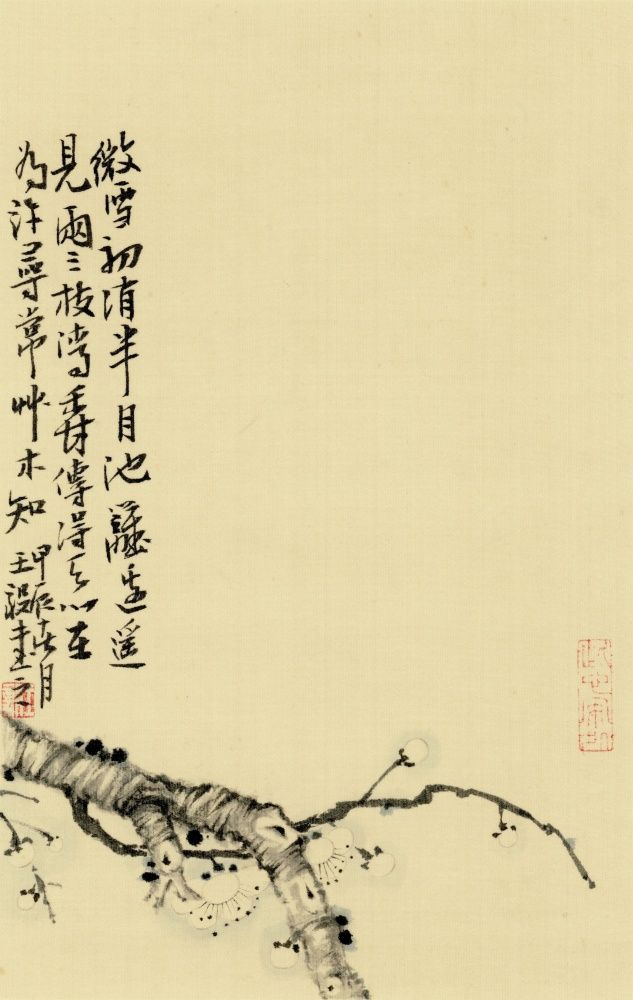 微雪初消半月池籬邊遙
見兩三枝清香傳得天心在
為許尋常艸木知
甲辰春月
王畫之